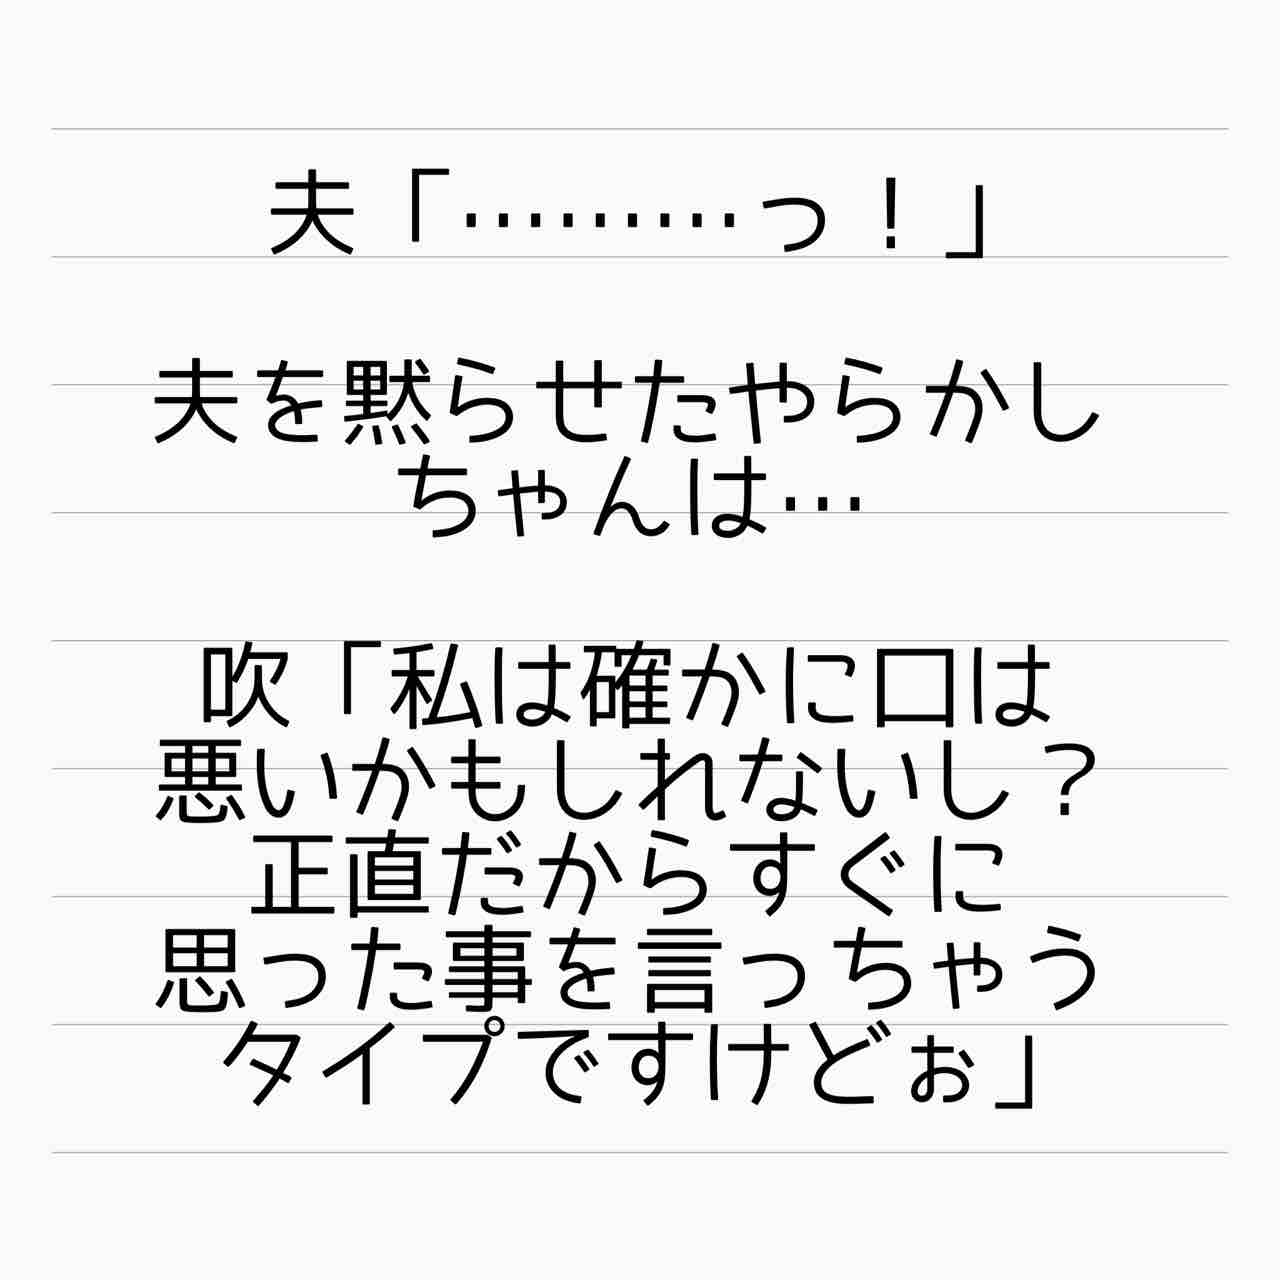 夫「………っ！」
夫を黙らせたやらかし
ちゃんは…
吹「私は確かに口は
悪いかもしれないし？
正直だからすぐに
思った事を言っちゃう
タイプですけどぉ」